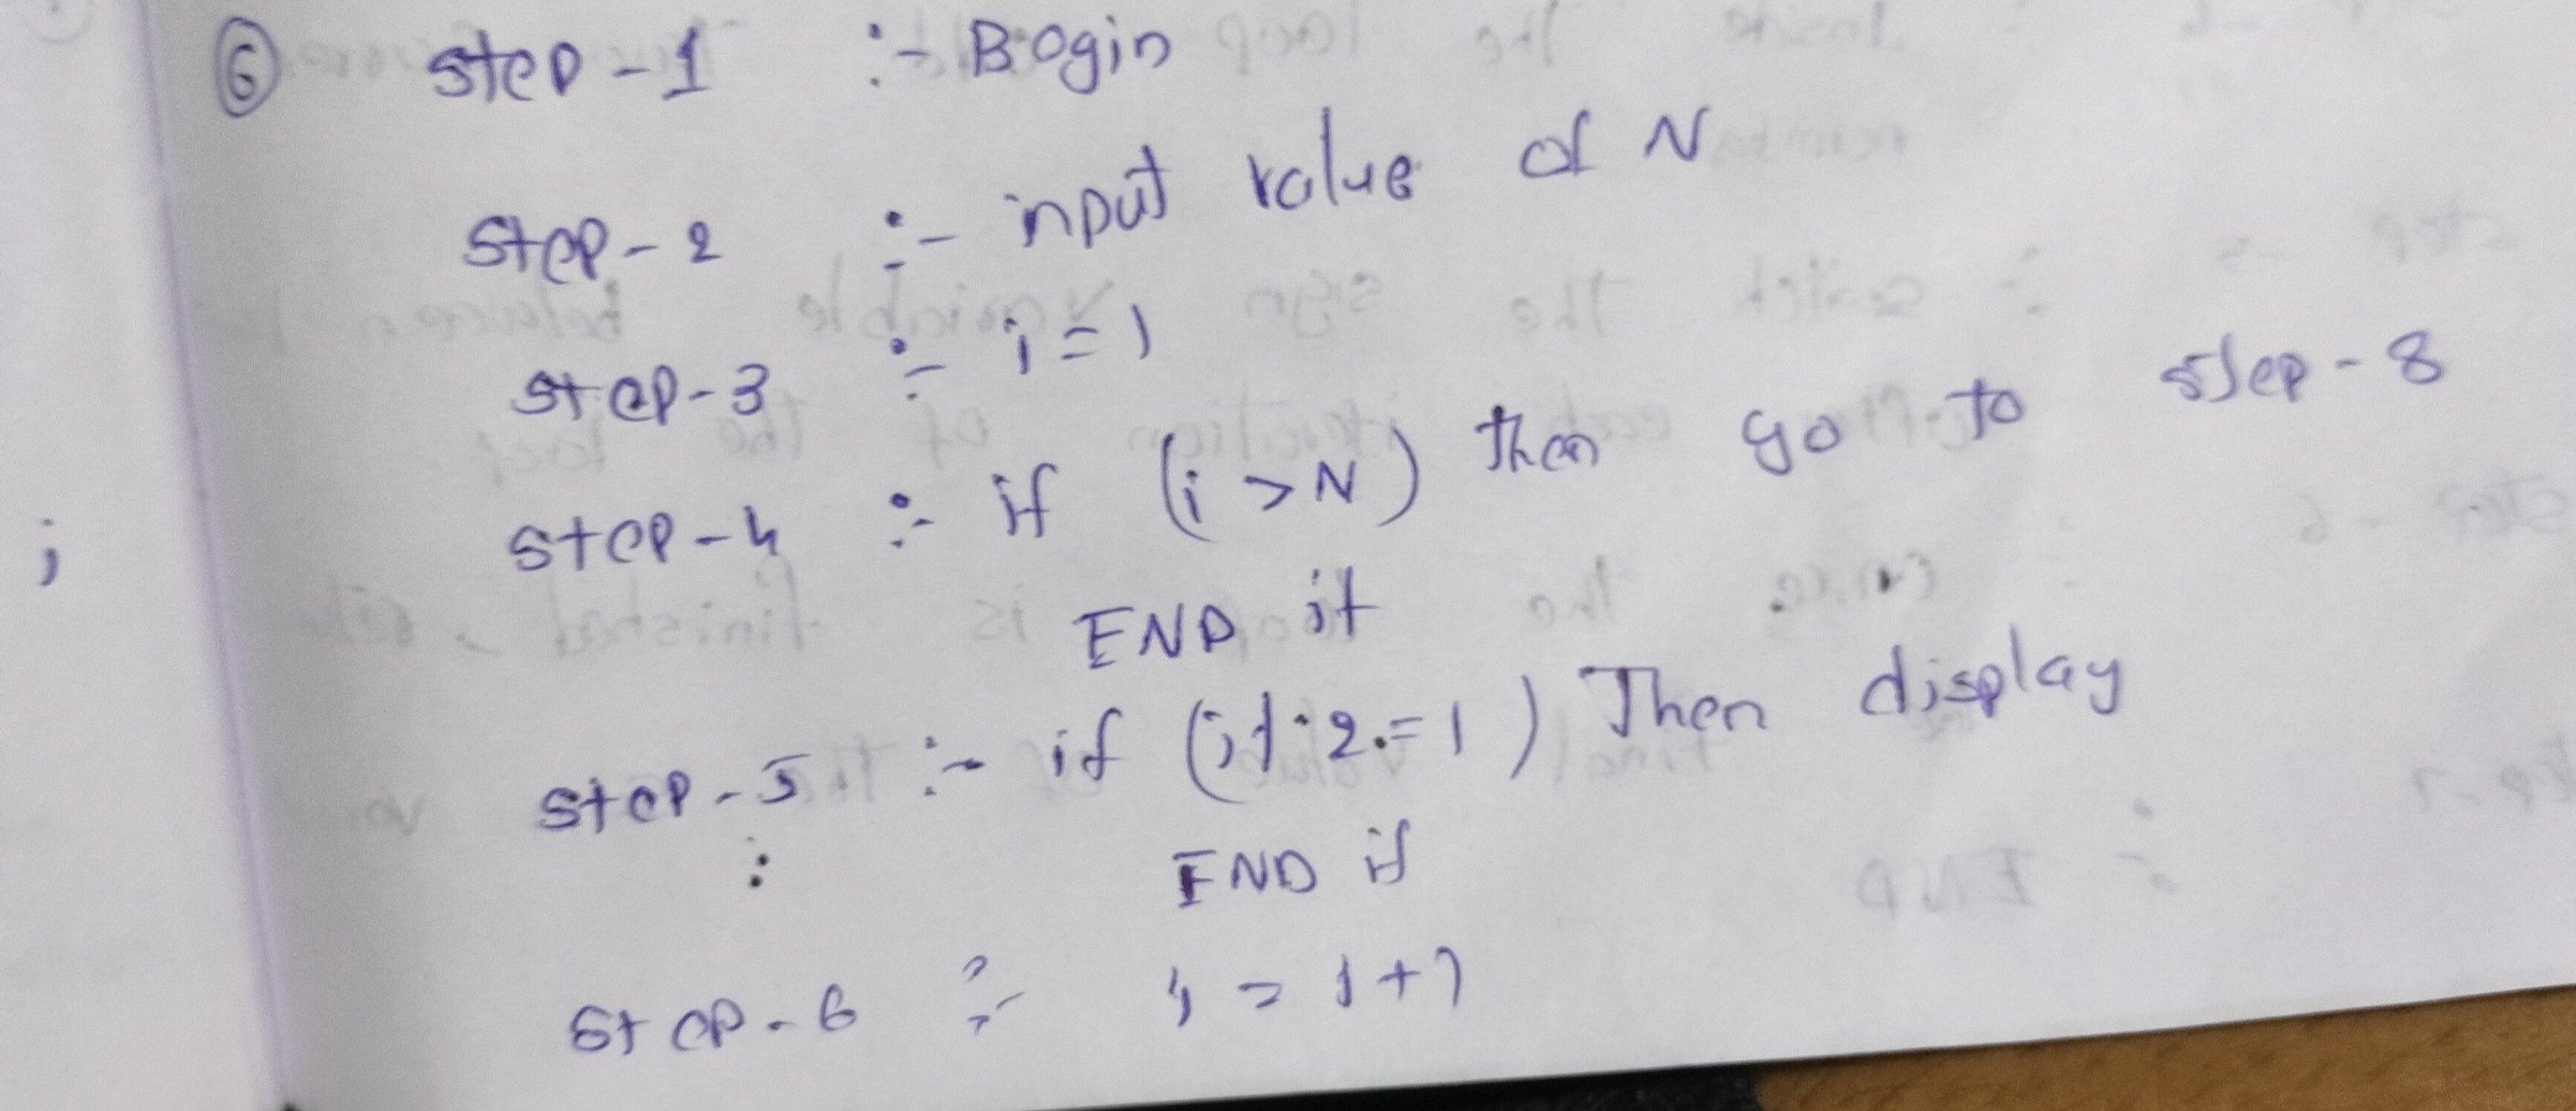 ⑥ Step-1 :- Begin
Step-2 :- input value of N
Step-3 :- i=1
Step-4 :- if (i>N) then go to step-8
END if
Step-5 :- if (i%2.=1) Then display
:
END if
Step-6 :- i = i+1
;